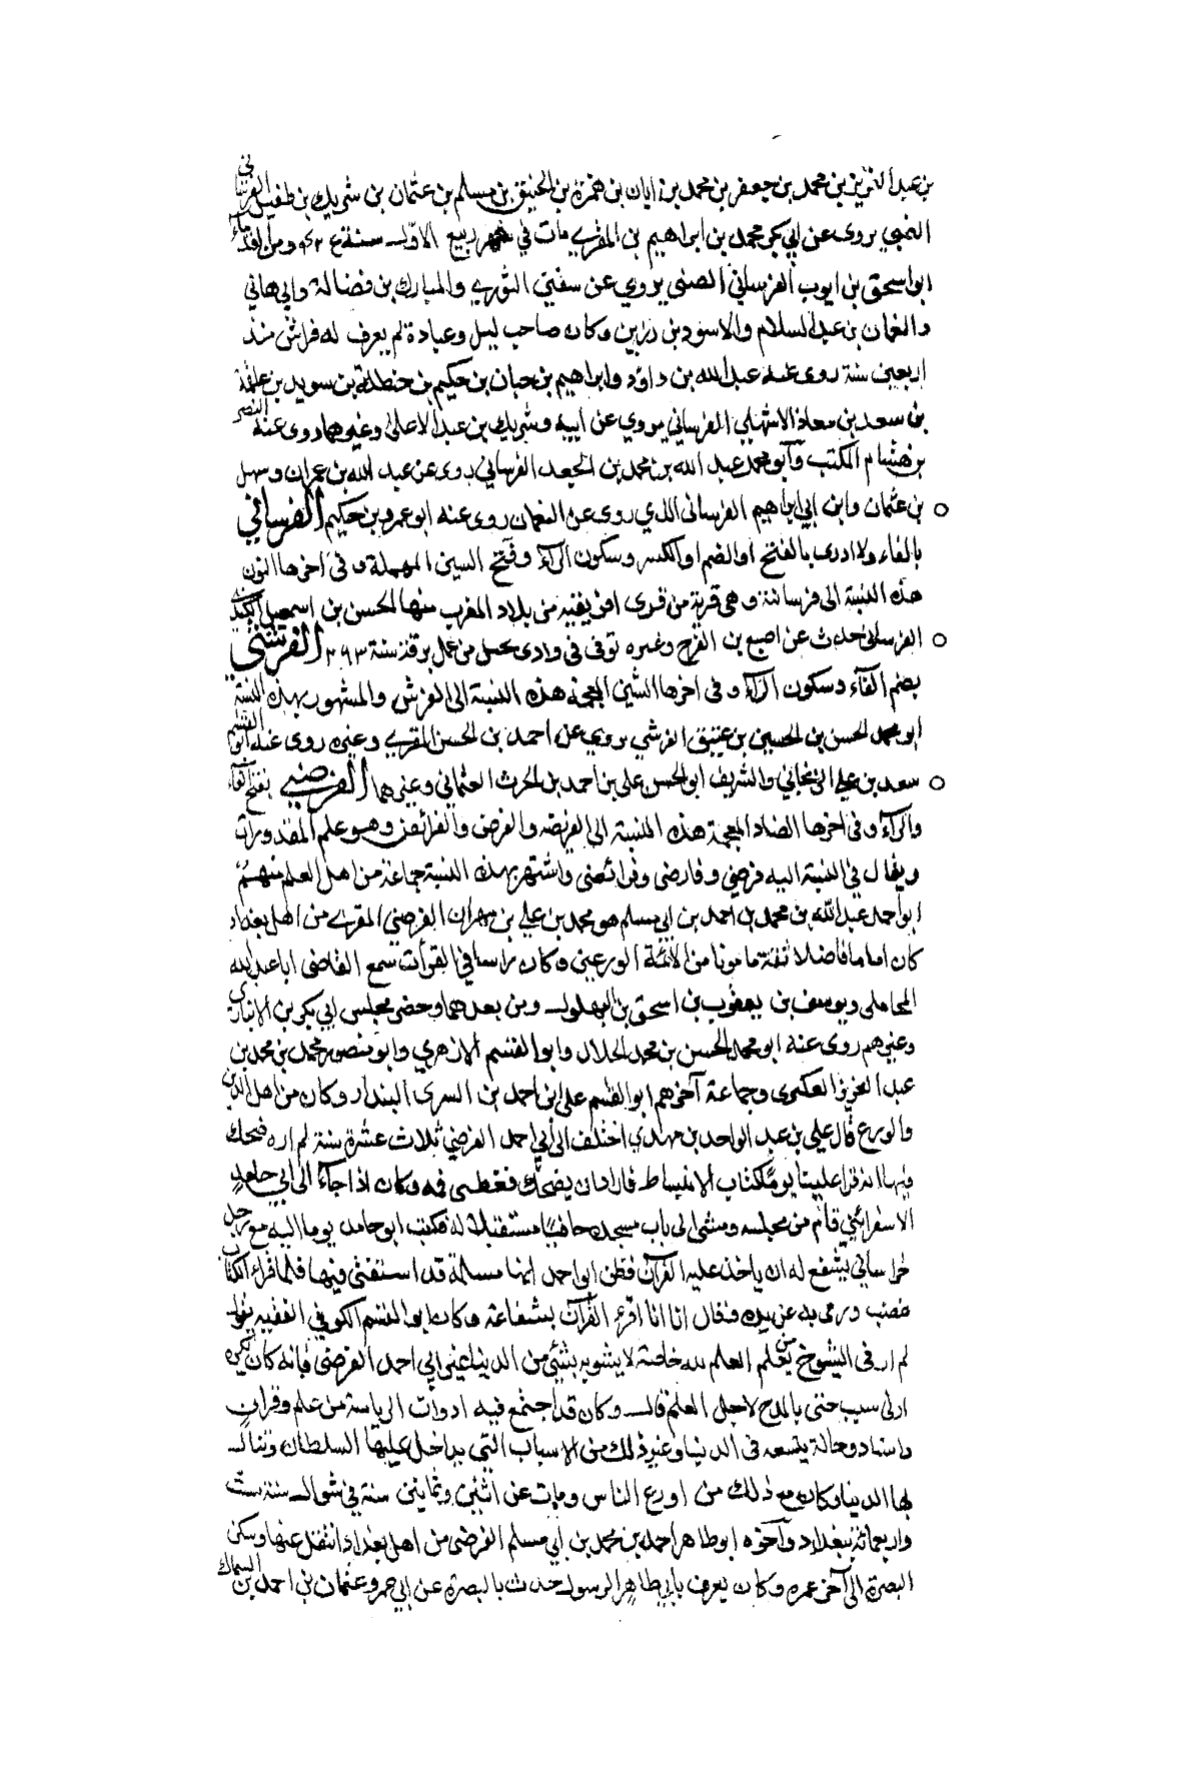 بن عبد العزيز بن محمد بن جعفر بن محمد بن ابان بن حمزة بن مسلم بن عثمان بن شريك بن طفيل الفرساني
يروى عن ابي بكر محمد بن ابراهيم بن المقرى مات في شهر ربيع الاول سنة ومن القدماء
ابو اسحق بن ايوب الفرساني يروي عن سفين الثوري والمبارك بن فضالة وابي هاني
والنعمان بن عبد السلام والاسود بن رزين وكان صاحب ليل وعبادة لم يعرف له فراش منذ
اربعين سنة روى عنه عبد الله بن داود وابراهيم بن حيان بن حكيم بن حنظلة بن سويد بن علقمة
بن سعد بن معاذ الاشهلي الفرساني يروي عن ابيه وشريك بن عبد الاعلى وغيرهما روى عنه النضر
بن هشام المكتب وابو محمد عبد الله بن محمد بن الجعد الفرساني روى عن عبد الله بن عمران وسهل
بن عثمان وابن ابي ابراهيم الفرسانى الذي روى عن النعمان روى عنه ابو عمرو بن حكيم الفرساني
بالفاء ولا ادرى بالفتح او الضم او الكسر وسكون الراء وفتح السين المهملة وفى اخرها النون
هذه النسبة الى فرسانة وهى قرية من قرى افريقية من بلاد المغرب منها الحسن بن اسمعيل الكندى
الفرسانى حدث عن اصبغ بن الفرج وغيره توفى فى وادى من عمل برقة سنة ٢٩٣ الفرشي
بضم الفآء وسكون الرآء وفى اخرها الشين المعجمة هذه النسبة الى الفرش والمشهور بهذه النسبة
ابو محمد الحسن بن الحسين بن عتيق الفرشي يروي عن احمد بن الحسن المقري وغيره روى عنه ابو القسم
سعد بن علي الزنجاني والشريف ابو الحسن على بن احمد بن الحرث العثماني وغيرهما الفرضي بفتح الفآء
والرآء وفى اخرها الضاد المعجمة هذه النسبة الى الفريضة والفرض والفرائض وهو علم المقدورات
ويقال في النسبة اليه فرضي وفارضى وفرائضى واشتهر بهذه النسبة جماعة من اهل العلم منهم
ابو احمد عبد الله بن محمد بن احمد بن ابي مسلم هو محمد بن علي بن مهران الفرضي المقرى من اهل بغداد
كان اماما فاضلا ثقة مامونا من الائمة الورعين وكان راسا في القرآت سمع القاضى ابا عبد الله
المحاملى ويوسف بن يعقوب بن اسحق بن البهلول ومن بعدهما وحضر مجلس ابي بكر بن الانباري
وغيرهم روى عنه ابو محمد الحسن بن محمد الخلال وابو القسم الازهري وابو منصور محمد بن محمد بن
عبد العزيز العكبرى وجماعة آخرهم ابو القسم على بن احمد بن السرى البندار وكان من اهل الدين
والورع قال علي بن عبد الواحد بن مهدي اختلف الى ابي احمد الفرضي ثلاث عشرة سنة لم اره ضحك
فيها الا انه قرا علينا يوما كتاب الانبساط فاراد ان يضحك فغطى فمه وكان اذا جآء الى ابي حامد
الاسفرائني قام من مجلسه ومشى الى باب مسجده حافيا مستقبلا له فكتب ابو حامد يوما اليه مع رجل
خراساني يشفع له ان ياخذ عليه القرآن فظن ابو احمد انها مسالة قد استفتى فيها فلما قراء الكتاب
غضب ورمى به عن يده وقال انا انا اقرء القرآن بشفاعة وكان ابو القسم الكوفي الفقيه يقول
لم ار فى الشيوخ من يعلم العلم لله خاصة لا يشوبه بشئ من الدنيا غير ابي احمد الفرضى فانه كان يكره
ادنى سبب حتى بالمدح لاجل العلم قال وكان قد اجتمع فيه ادوات الرياسة من علم وقران
واسناد وحالة متسعه فى الدنيا وغير ذلك من الاسباب التي يداخل عليها السلطان وتنال
بها الدنيا وكان مع ذلك من اورع الناس ومات عن اثنين وثمانين سنة في شوال سنة ست
واربعمائة ببغداد واخوه ابو طاهر احمد بن محمد بن ابي مسلم الفرضى من اهل بغداد انتقل عنها وسكن
البصرة الى آخر عمره وكان يعرف بابي طاهر الرسول حدث بالبصرة عن ابي عمرو عثمان بن احمد بن السماك